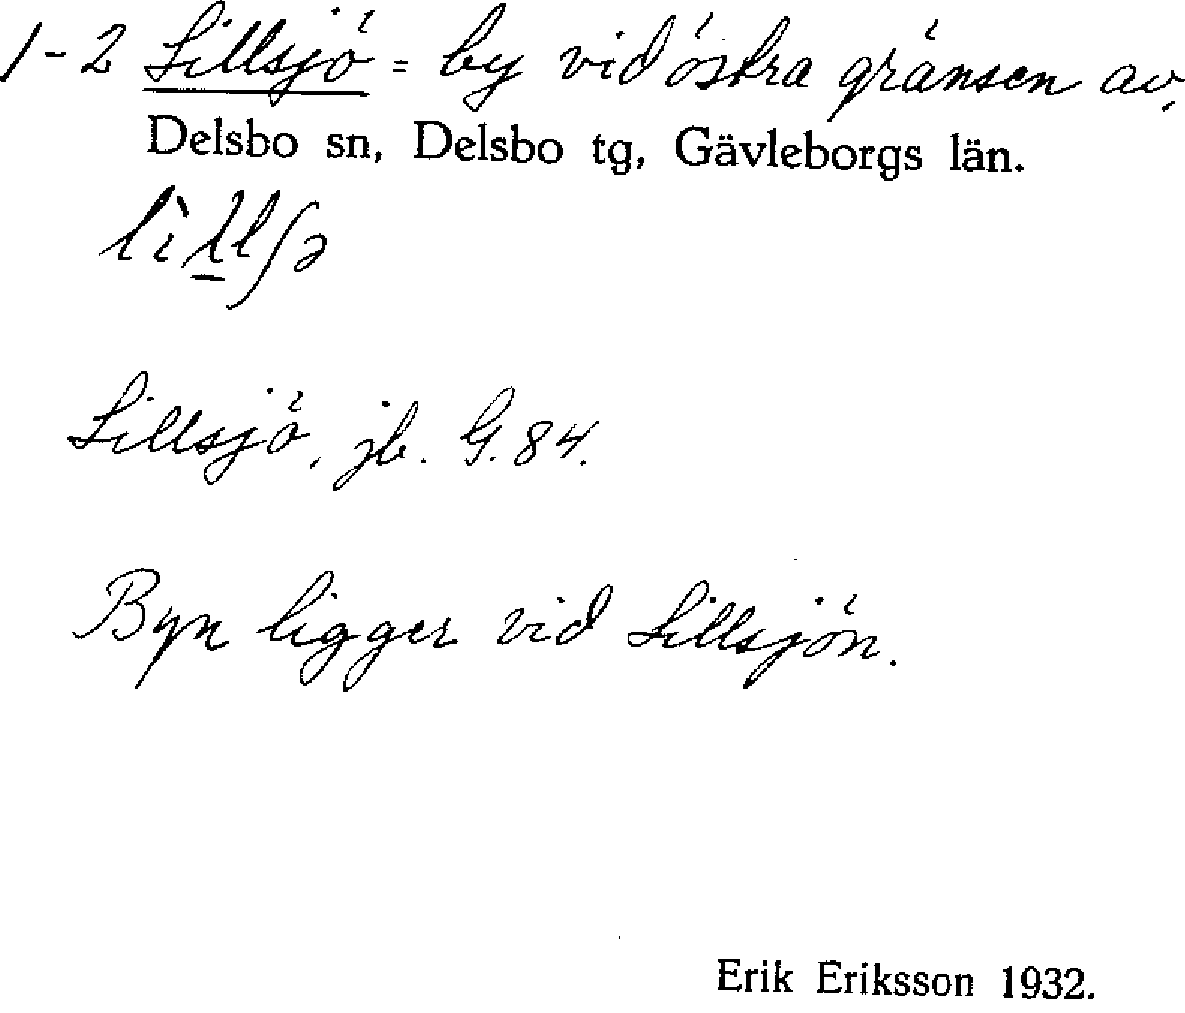 1-2 Lillsjö = by vid östra gränsen av
Delsbo sn, Delsbo tg, Gävleborgs län.
lìl̠lʃə
Lillsjö, jb. G. 84.
Byn ligger vid Lillsjön.
Erik Eriksson 1932.